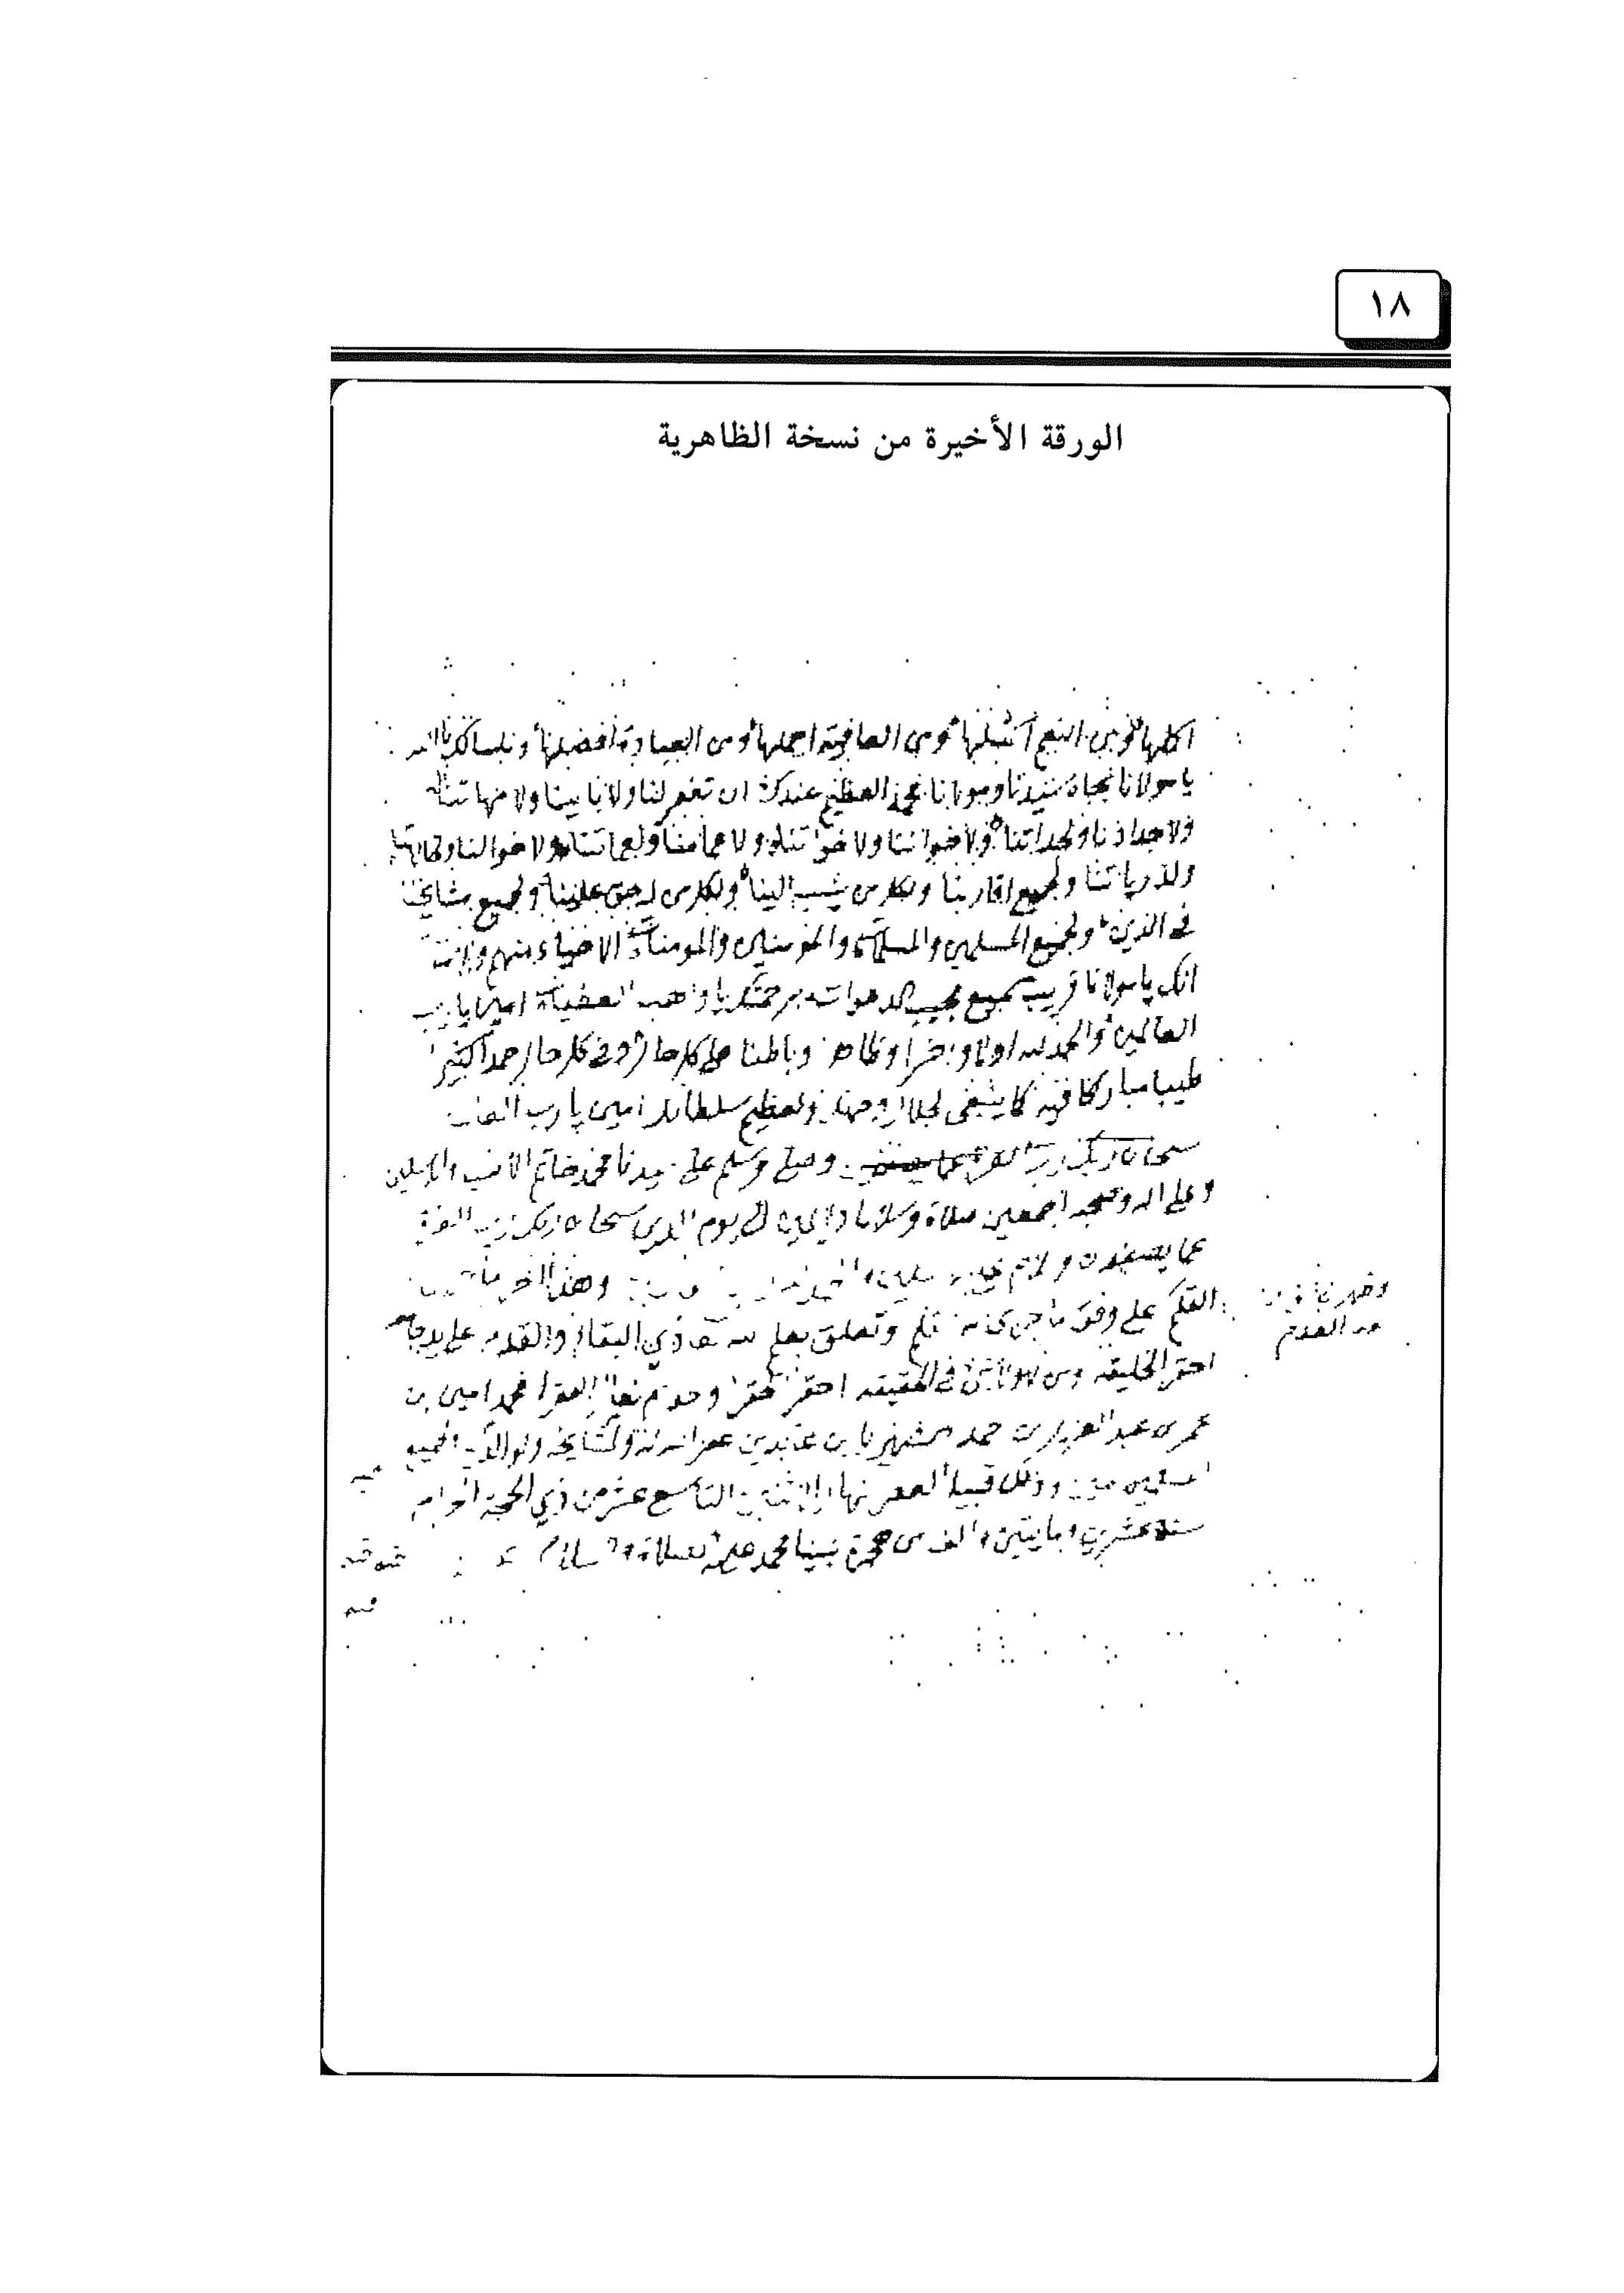 ١٨
الورقة الأخيرة من نسخة الظاهرية
اكملها ومن النعم اشملها ومن العافية اجملها ومن العبادة افضلها ونسالك
يا مولانا بجاه سيدنا ومولانا محمد العظيم عندك ان تغفر لنا ولابايينا ولامهاتنا
ولاجدادنا ولجداتنا ولاخواننا ولاخواتنا ولاعمامنا ولعماتنا ولاخوالنا ولخالاتنا
ولذرياتنا ولجميع اقاربنا ولكل من ينسب الينا ولكل من له حق علينا ولجميع مشايخنا
في الدين ولجميع المسلمين والمسلمات والمومنين والمومنات الاحياء منهم
انك يا مولانا قريب سميع مجيب الدعوات برحمتك يا واهب العطيات امين يا رب
العالمين والحمد لله اولا واخرا وظاهرا وباطنا على كل حال وفي كل حال حمدا كثيرا
طيبا مباركا فيه كما ينبغي لجلال وجهك ولعظيم سلطانك امين يا رب
سبحان ربك رب العزة عما يصفون وصلى وسلم على سيدنا محمد خاتم الانبيا والمرسلين
وعلى اله وصحبه اجمعين صلاة وسلاما دايمين الى يوم الدين سبحان ربك رب العزة
عما يصفون وسلام وهذا اخر
القلم على وفق وتعلق بعلم الله ذي البقاء والقدم على يد جامعه
احقر الخليقة ومن في الحقيقة احقر وخدم نعال الفقرا محمد امين بن
عمر بن عبد العزيز بن احمد الشهير بابن عابدين غفر الله له ولمشايخه ولوالديه ولجميع
المسلمين وذلك قبيل العصر نهار الاثنين التاسع عشر من ذي الحجة الحرام
سنة عشرين ومايتين والف من هجرة نبينا محمد عليه الصلاة والسلام